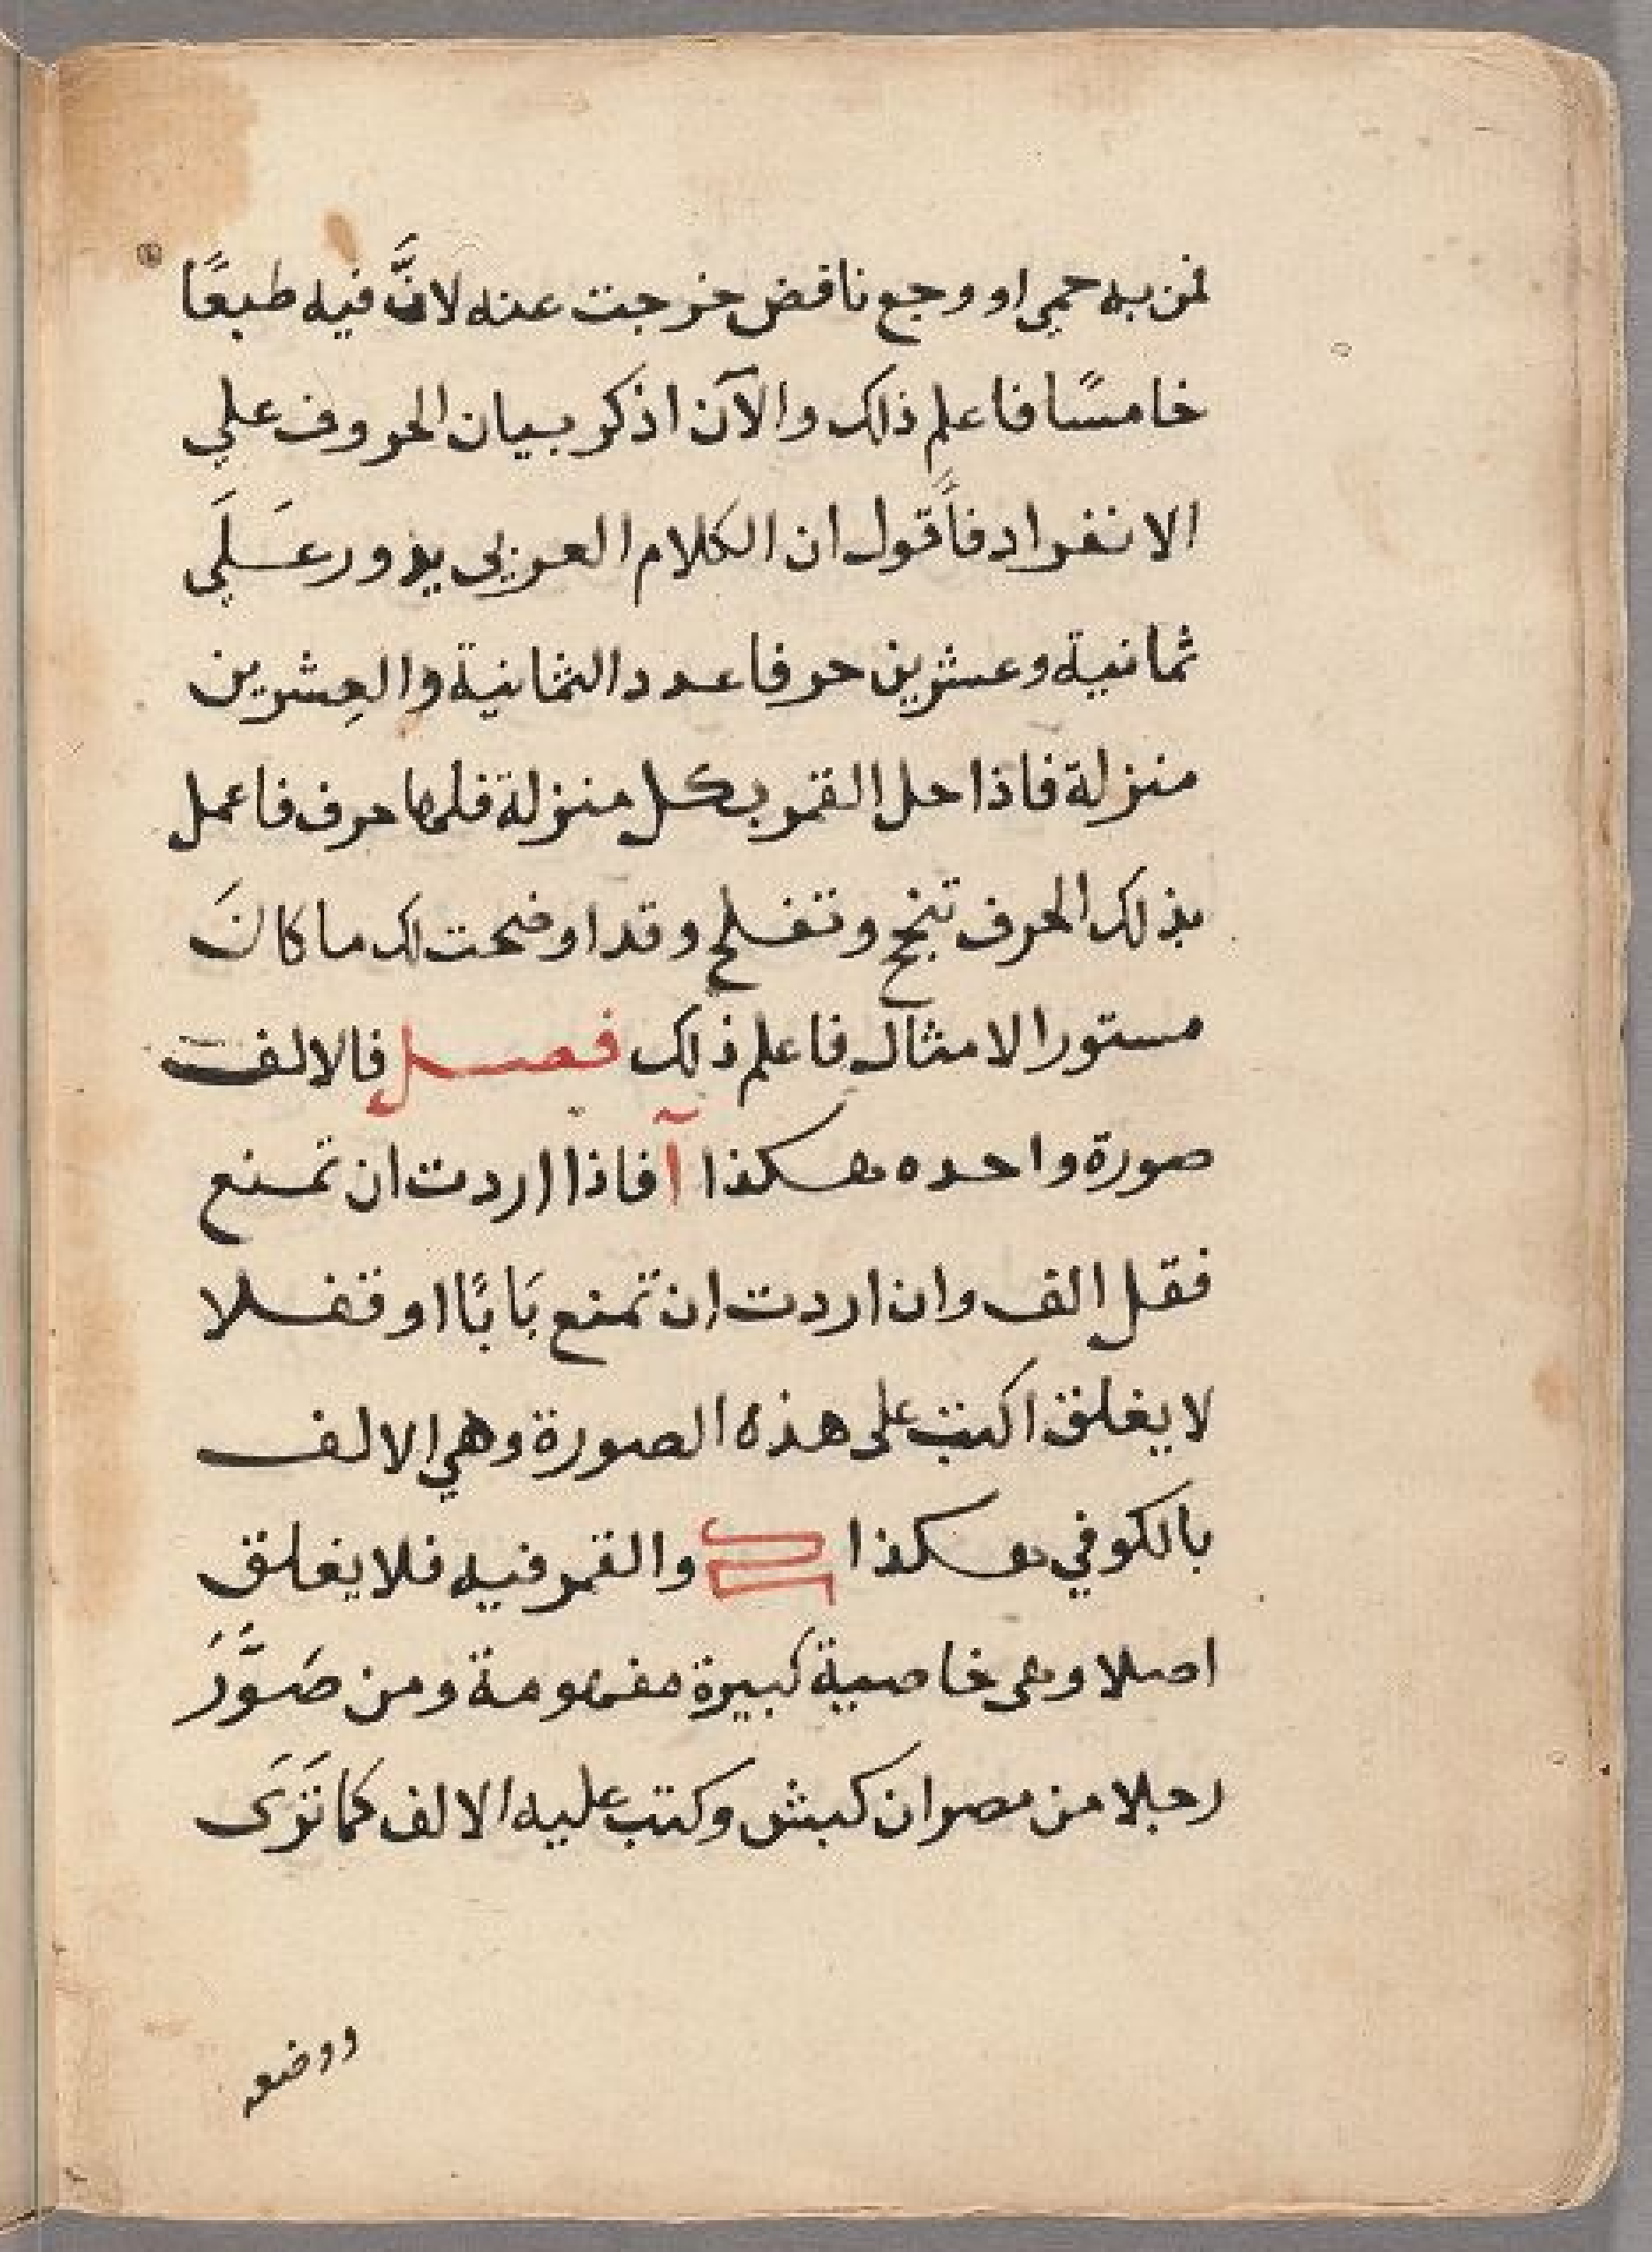 لمن به حمى او وجع ناقض خرجت عنه لانَّ فيه طبعًا
خامسًا فاعلم ذلك والآن اذكر بيان الحروف علي
الانفراد فأقول ان الكلام العربي يدور عَلَي
ثمانية وعشرين حرفا عدد الثمانية والعِشرين
منزلة فاذا حل القمر بكل منزلة فلها حرف فاعمل
بذلك الحرف تنجح وتفلح وقد اوضحت لك ما كانَ
مستور الامثال فاعلم ذلك فصل فالالف
صورة واحده هكذا آ فاذا اردت ان تمنع
فقل الف وان اردت ان تمنع بَابًا او قفلا
لا يغلق اكتب على هذه الصورة وهي الالف
بالكوفي هكذا والقمر فيه فلا يغلق
اصلا وهى خاصية كبيرة مفهومة ومن صَوَّرَ
رجلا من مصران كبش وكتب عليه الالف كما تَرَى